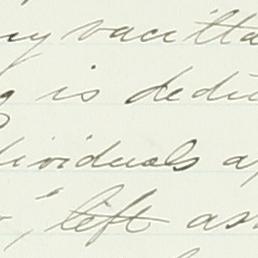 ny vacilla
g is dedic
dividuals a
" left as